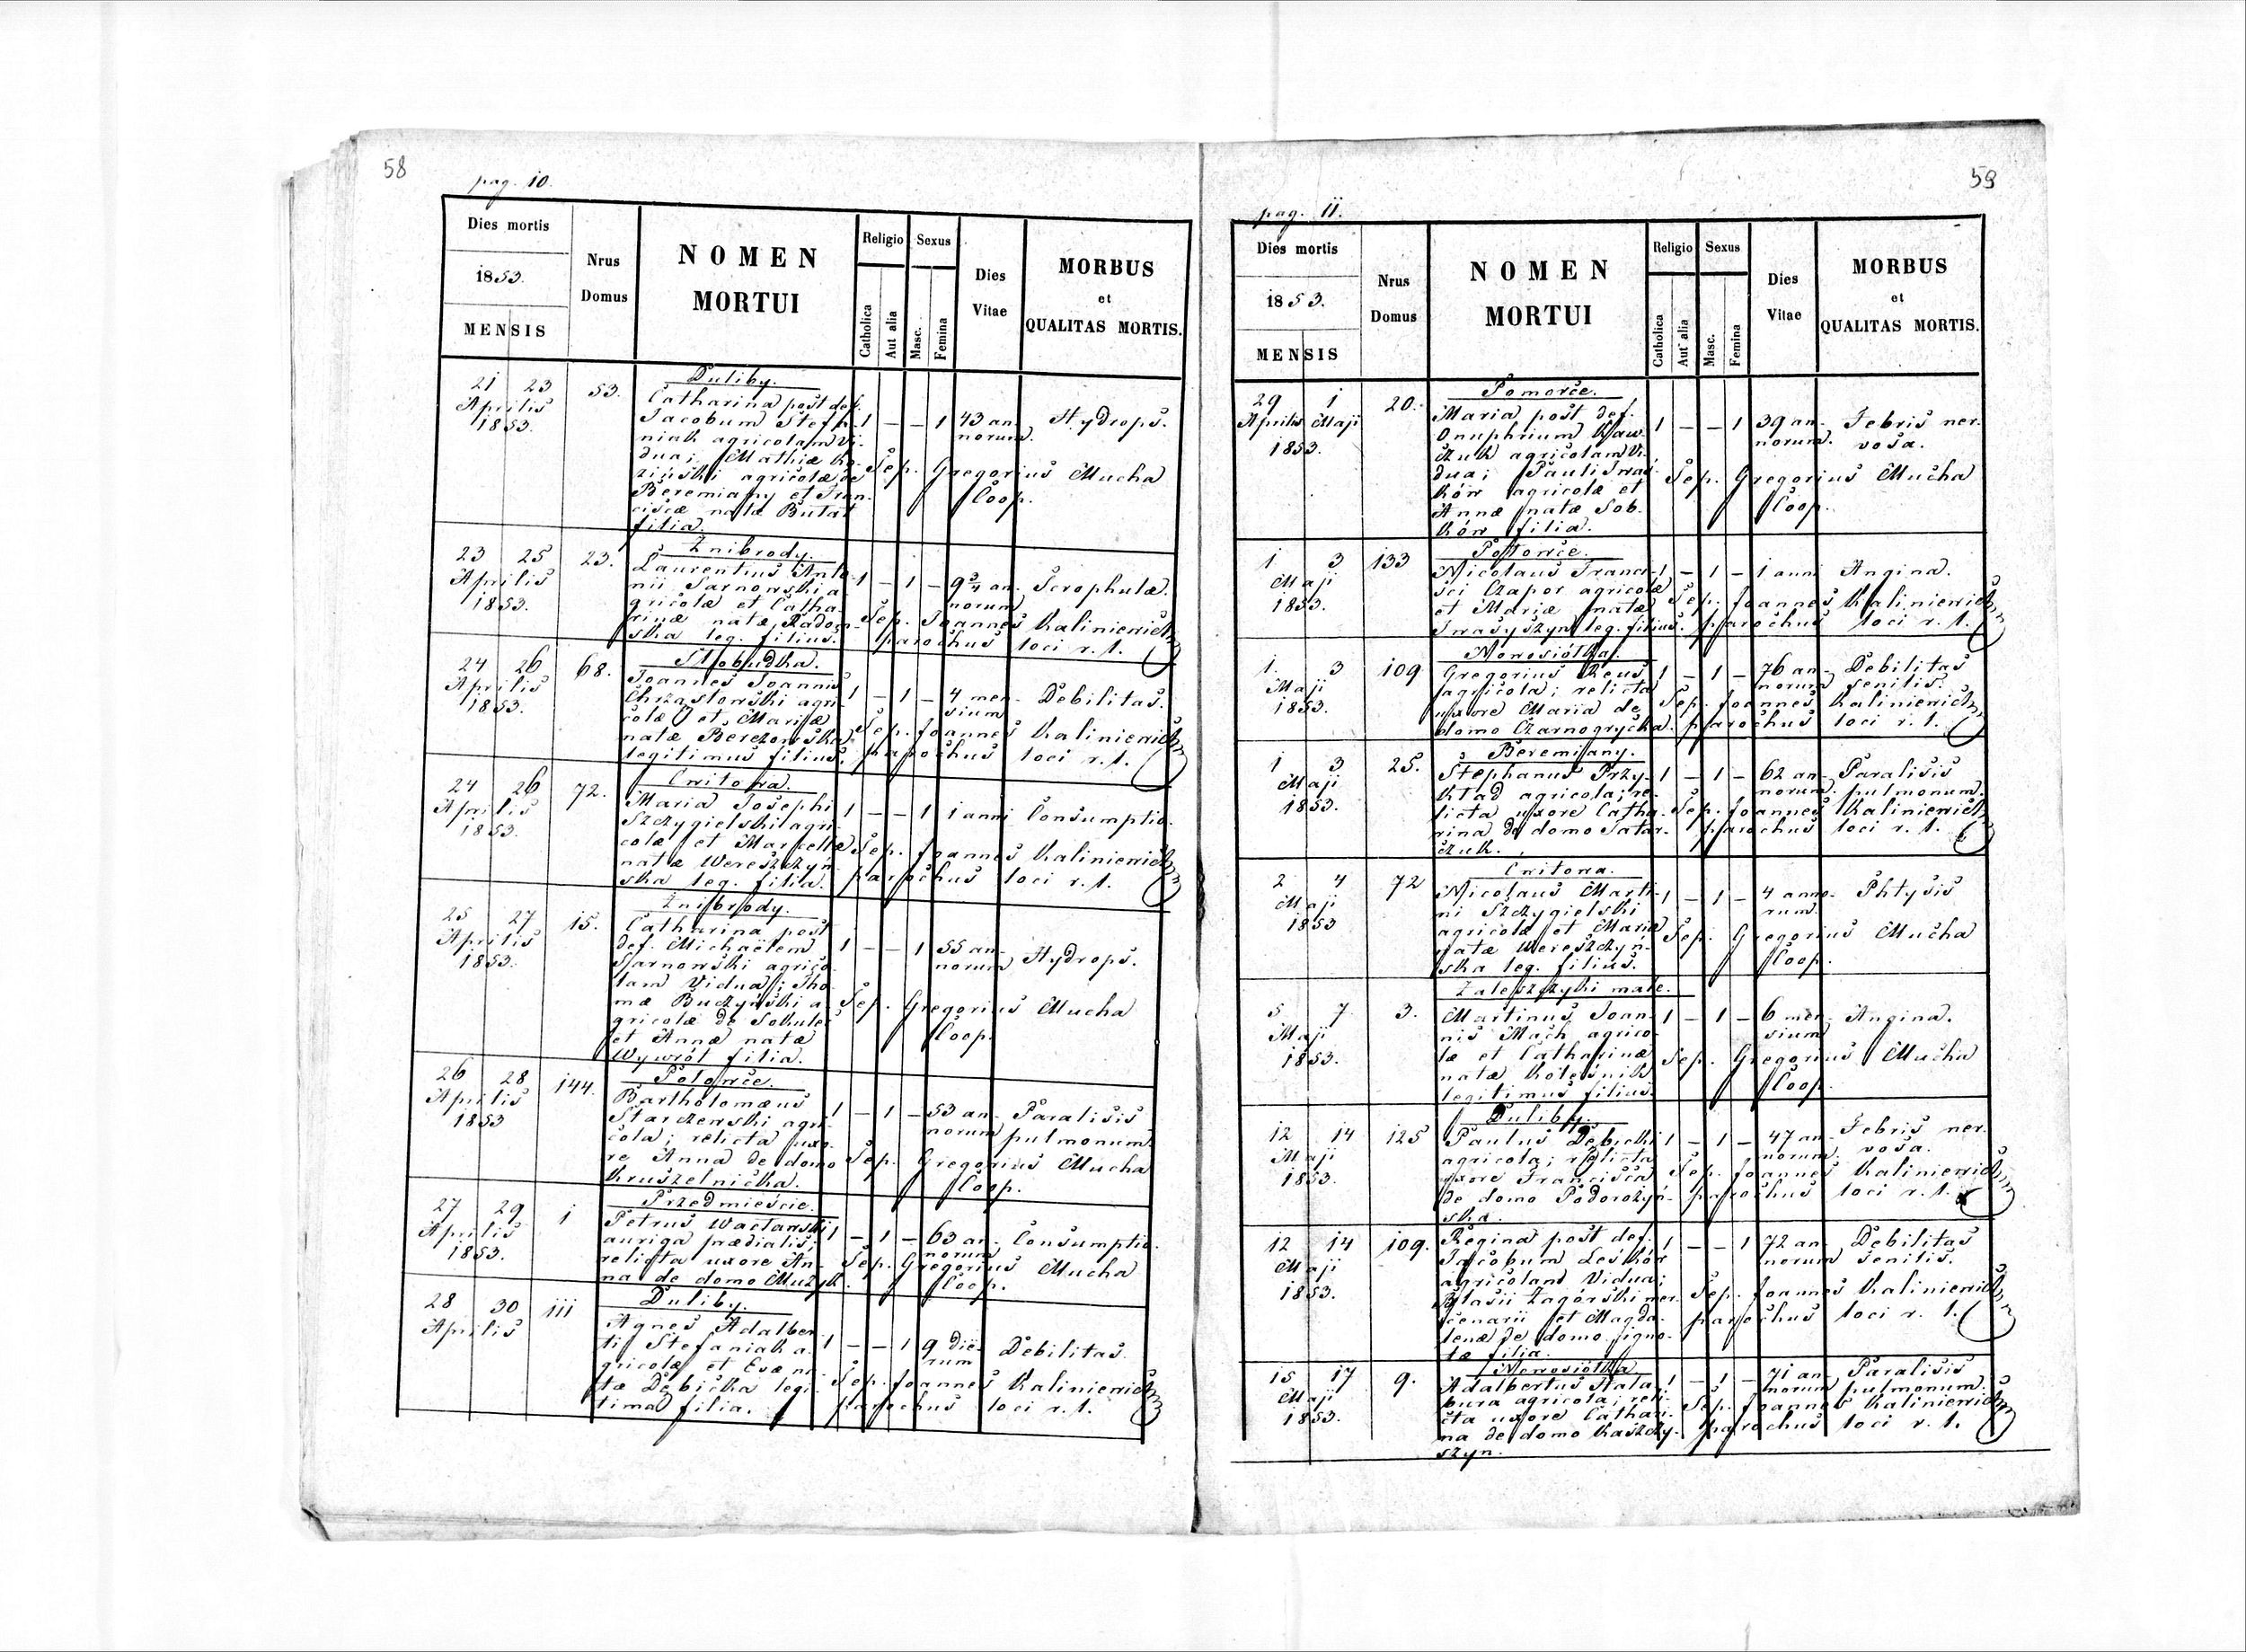 58
pag. 10.
Dies mortis
1853.
MENSIS
Nrus
Domus
NOMEN
MORTUI
Religio
Catholica
Aut alia
Sexus
Masc.
Femina
Dies
Vitae
MORBUS
et
QUALITAS MORTIS.
21 23
Aprilis
1853.
53.
Duliby.
Catharina post def.
Jacobum Stefa-
niak agricolam Vi-
dua; Mathiæ Ko-
ziński agricolæ de
Beremiany et Fran-
ciscæ natæ Butat
filia.
1 – – 1
43 an-
norum.
Hydrops.
Sep. Gregorius Mucha
Coop.
23 25
Aprilis
1853.
23.
Znibrody.
Laurentius Anto-
nii Sarnowski a-
gricolæ et Catha-
rinæ natæ Radom-
ska leg. filius.
1 – 1 –
9 3/4 an-
norum
Scrophulæ.
Sep. Joannes Kaliniewicz
parochus loci r. l.
24 26
Aprilis
1853.
68.
Słobudka.
Joannes Joannis
Chrzastowski agri-
colæ et Mariæ
natæ Berezowska
legitimus filius.
1 – 1 –
4 men-
sium
Debilitas.
Sep. Joannes Kaliniewicz
parochus loci r. l.
24 26
Aprilis
1853.
72.
Cwitowa.
Maria Josephi
Szczygielski agri-
colæ et Marcellæ
natæ Wereszczyń-
ska leg. filia.
1 – – 1
1 anni
Consumptio.
Sep. Joannes Kaliniewicz
parochus loci r. l.
25 27
Aprilis
1853.
15.
Znibrody.
Catharina post
def. Michaëlem
Sarnowski agrico-
lam Vidua; Tho-
mæ Buczyński a-
gricolæ de Sokulec
et Annæ natæ
Wywrót filia.
1 – – 1
55 an-
norum
Hydrops.
Sep. Gregorius Mucha
Coop.
26 28
Aprilis
1853
144.
Potowce.
Bartholomæus
Starczewski agri-
cola; relicta uxo-
re Anna de domo
Kruszelnicka.
1 – 1 –
53 an-
norum
Paralisis
pulmonum.
Sep. Gregorius Mucha
Coop.
27 29
Aprilis
1853.
1
Przedmiescie.
Petrus Wacławski
auriga prædialis;
relicta uxore An-
na de domo Muzyk.
1 – 1 –
63 an-
norum
Consumptio.
Sep. Gregorius Mucha
Coop.
28 30
Aprilis
111
Duliby.
Agnes Adalber-
ti Stefaniak a-
gricolæ et Evæ na-
tæ Dębicka legi-
tima filia.
1 – – 1
9 die-
rum
Debilitas.
Sep. Joannes Kaliniewicz
parochus loci r. l.
59
pag. 11.
Dies mortis
1853.
MENSIS
Nrus
Domus
NOMEN
MORTUI
Religio
Catholica
Aut alia
Sexus
Masc.
Femina
Dies
Vitae
MORBUS
et
QUALITAS MORTIS.
29 1
Aprilis Maji
1853.
20.
Pomorce.
Maria post def.
Onuphrium Kaw-
czuk agricolam Vi-
dua; Pauli Iwas-
ków agricolæ et
Annæ natæ Sob-
ków filia.
1 – – 1
39 an-
norum.
Febris ner-
vosa.
Sep. Gregorius Mucha
Coop.
1 3
Maji
1853.
133
Potowce.
Nicolaus Franci-
sci Czapor agricolæ
et Mariæ natæ
Iwasyszyn leg. filius.
1 – 1 –
1 anni
Angina.
Sep. Joannes Kaliniewicz
parochus loci r. l.
1. 3
Maji
1853.
109
Nowosiółka.
Gregorius Reus
agricola; relicta
uxore Maria de
domo Czarnogrycka.
1 – 1 –
76 an-
norum
Debilitas
senilis.
Sep. Joannes Kaliniewicz
parochus loci r. l.
1 3
Maji
1853.
25.
Beremiany.
Stephanus Przy-
kład agricola; re-
licta uxore Catha-
rina de domo Tatar-
czuk.
1 – 1 –
62 an-
norum.
Paralisis
pulmonum.
Sep. Joannes Kaliniewicz
parochus loci r. l.
2 4
Maji
1853
72
Cwitowa.
Nicolaus Marti-
ni Szczygielski
agricolæ et Mariæ
natæ Wereszczyń-
ska leg. filius.
1 – 1 –
4 anno-
rum.
Phtysis
Sep. Gregorius Mucha
Coop.
5 7
Maji
1853.
3.
Zaleszczyki małe.
Martinus Joan-
nis Mach agrico-
læ et Catharinæ
natæ Koleśnik
legitimus filius.
1 – 1 –
6 men-
sium
Angina.
Sep. Gregorius Mucha
Coop.
12 14
Maji
1853.
125
Duliby.
Paulus Dębicki
agricola; relicta
uxore Francisca
de domo Podorożyń-
ska.
1 – 1 –
47 an-
norum.
Febris ner-
vosa.
Sep. Joannes Kaliniewicz
parochus loci r. l.
12 14
Maji
1853.
109.
Regina post def.
Jacobum Leśków
agricolam Vidua;
Blasii Zagórski mer-
cenarii et Magda-
lenæ de domo igno-
tæ filia.
1 – – 1
72 an-
norum
Debilitas
senilis.
Sep. Joannes Kaliniewicz
parochus loci r. l.
15 17
Maji
1853.
9.
Nowosiółka
Adalbertus Hala-
bura agricola; reli-
cta uxore Cathari-
na de domo Kaszczy-
szyn.
1 – 1 –
71 an-
norum
Paralisis
pulmonum.
Sep. Joannes Kaliniewicz
parochus loci r. l.